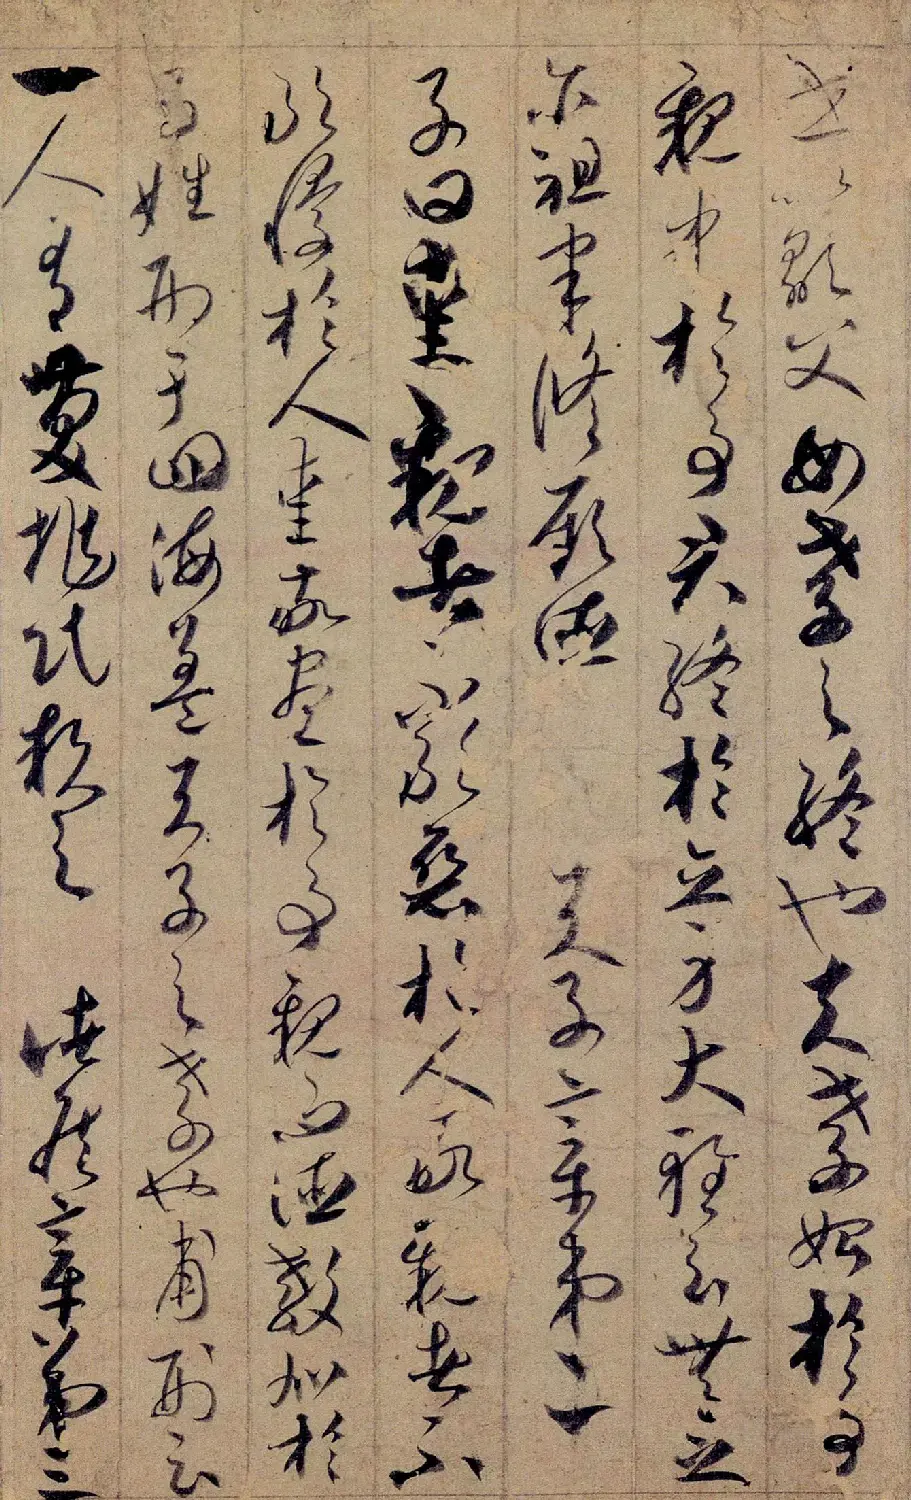 世以顯父母孝之終也夫孝始於事
親中於事君終於立身大雅云無念
尔祖聿脩厥德　天子章第二
子曰愛親者不敢惡於人敬親者不
敢慢於人愛敬盡於事親而德教加於
百姓刑于四海蓋天子之孝也甫刑云
一人有慶兆民賴之　諸侯章第三